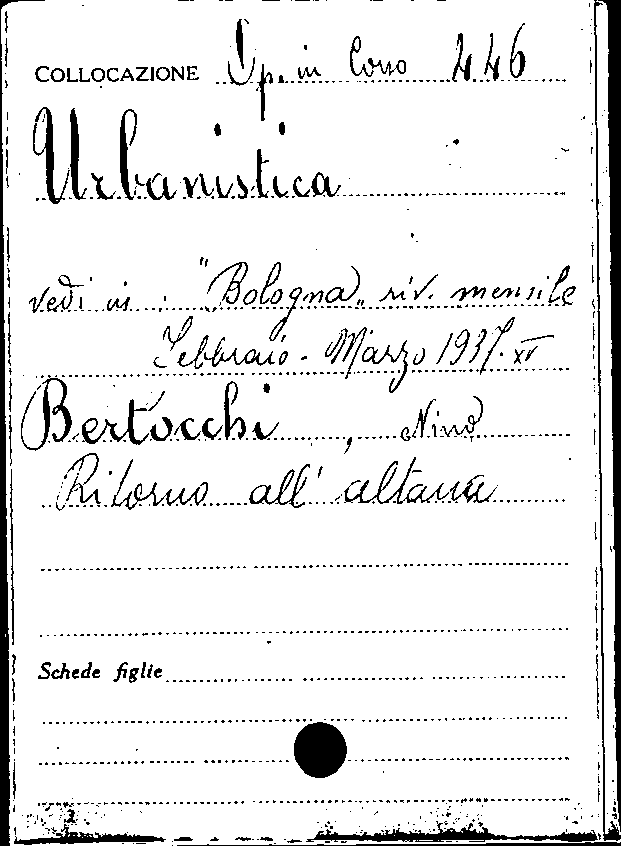 COLLOCAZIONE Op. in Corso 446
Urbanistica
vedi in : "Bologna„ riv. mensile
Febbraio - Marzo 1937. XV
Bertocchi , Nino
Ritorno all' altana
Schede figlie